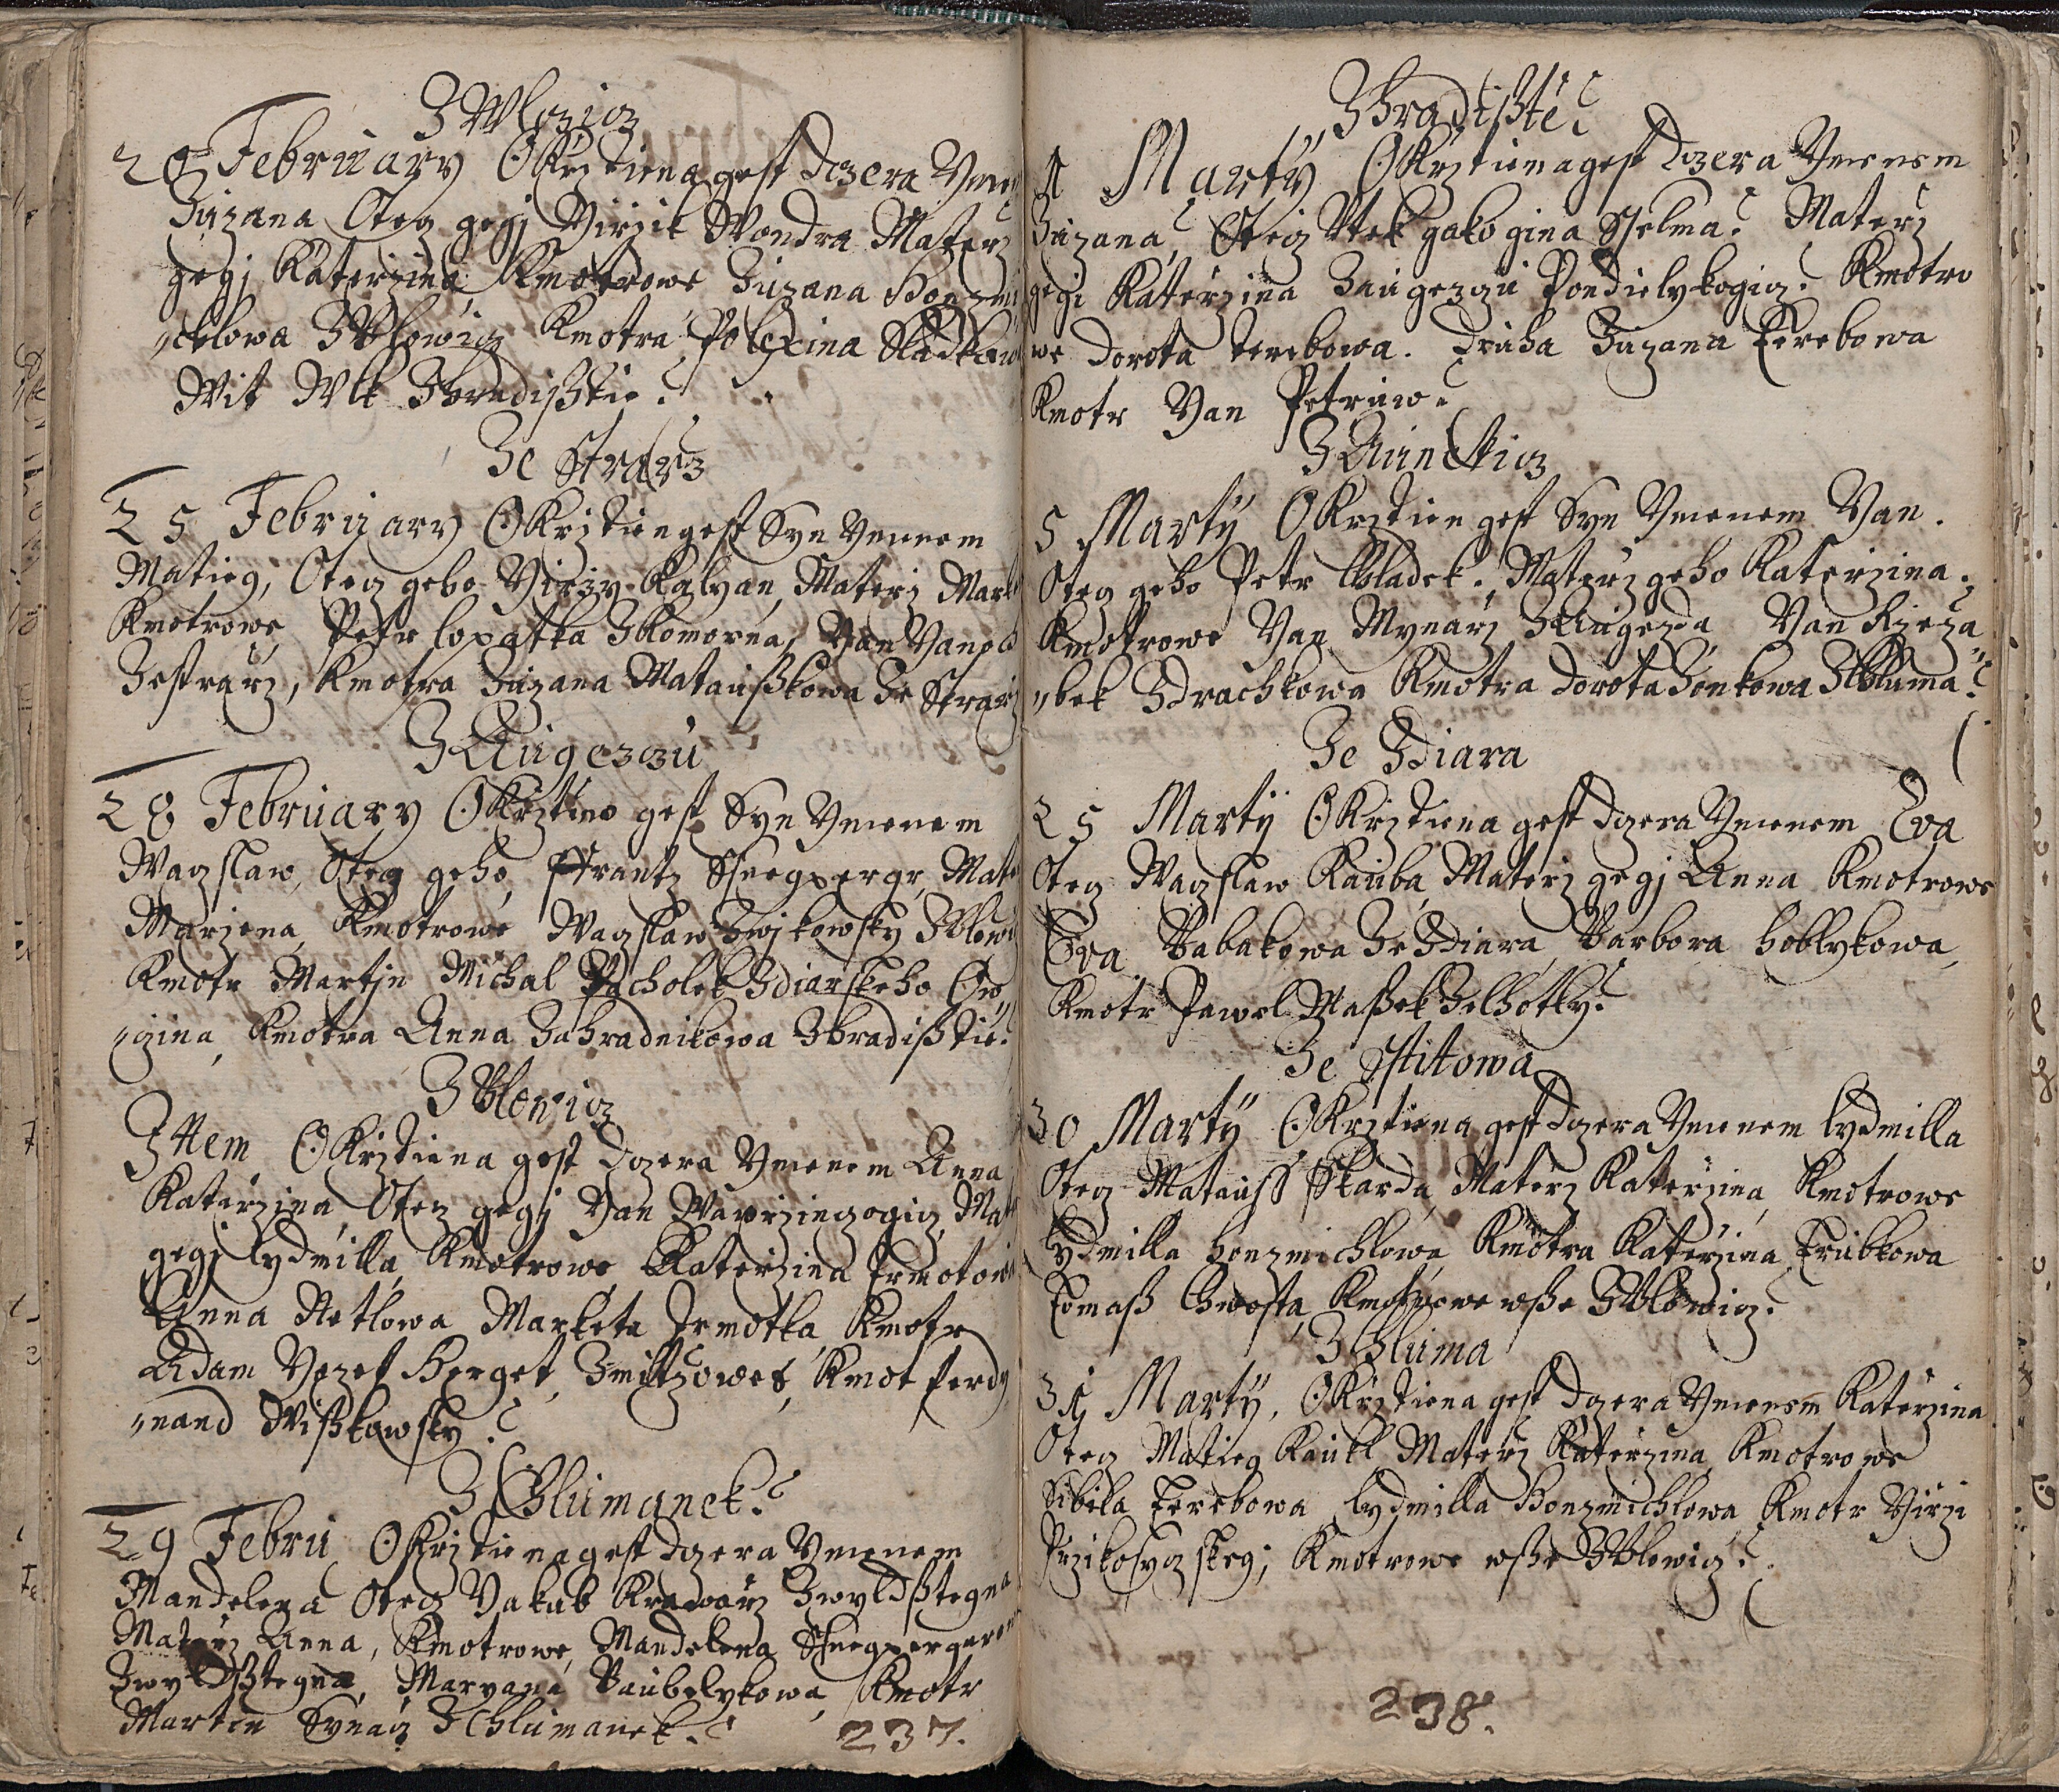 Z Wlczicz
20 February Okrztiena gest dczera Ymen
Zuzana Otecz gegj Yirzik Wondra Materz
gegj Katerzina Kmotrowe Zuzana Honzmi
„chlowa Z Blowicz Kmotra Polexina Sladkow
Wit Wlk Z Hradisstie.
Ze Strarz
25 February Okrztien gest Syn Ymenem
Matieg, Otecz geho Yirzy Kalyan, Materz Mark
Kmotrowe, Petr lopatka Z Komorna, Yan Yanol
Ze strarz, Kmotra Zuzana Matausskowa Ze Strarz
Z Augezczu
28 February Okrztien gest Syn Ymenem
Waczlaw, Otecz geho, Frantz Snegperger, Mate
Marzena, Kmotrowe Waczlaw Zwjkowsky Z Blowi
Kmotr Martjn Michal Pacholek Zdiarskeho Ow„
„czina, Kmotra Anna Zahradnikowa Z Hradisstie.
Z Blowicz
Ittem Okrztiena gest dczera Ymenem Anna
Katerzina, Otecz gegj Yan Wawrzinczogicz, Mat
gegj lydmilla, Kmotrowe Katerzina Frmotow
Anna Netlowa Marketa Frmotka, Kmotr
Adam Yozef Herget, Z mittzowes, Kmot Ferdy
„nand Wisskowsky.
Z Chlumanek.
29 Febru Okrztiena gest dczera Ymenem
Mandelena Otecz Yakub Krawarz Z wyldsstegna
Materz Anna, Kmotrowe, Mandelena Snegpergerow
Z wyldsstegna, Maryana Baubelykowa, Kmotr
Martin Synacz Z Chlumanek.
237.
Z Hradisste
1 Marty Okrztiena gest dczera Ymenem
Zuzana, Otecz Utek gako gina Sselma. Materz
gegi Katerzina Z augezczu Pondielykogicz. Kmotro
we Dorota terebowa. druha Zuzana Terebowa
Kmotr Yan Petruw.
Z Aunieticz
5 Marty Okrztien gest Syn Ymenem Yan.
Otecz geho Petr Wladek. Materz geho Katerzina.
Kmotrowe Yan Mynarz Z Augezda, Yan Rzeza„
„bek Z drachkowa Kmotra dorota Honkowa Z Chluma.
Ze Zdiara
25 Marty Okrztiena gest dczera Ymenem Eva
Otecz Waczslaw Kauba, Materz gegj Anna Kmotrowe
Eva Babakowa Ze Zdiara, Barbora hoblykowa,
Kmotr Pawel Massek Ze lhotky.
Ze Stitowa
30 Marty Okrztiena gest dczera Ymenem lydmilla
Otecz Matauss Skarda, Materz Katerzina, Kmotrowe
lydmilla honzmichlowa, Kmotra Katerzina Trubkowa
Tomass Chwosta, Kmotrowe wsse Z Blowicz.
Z Chluma
31 Marty, Okrztiena gest dczera Ymenem Katerzina
Otecz Matieg Kaukl Materz Katerzina Kmotrowe
Sibila Terebowa lydmilla Honzmichlowa Kmotr Yirzi
Przikosyczskeg; Kmotrowe wsse Z Blowicz.
238.